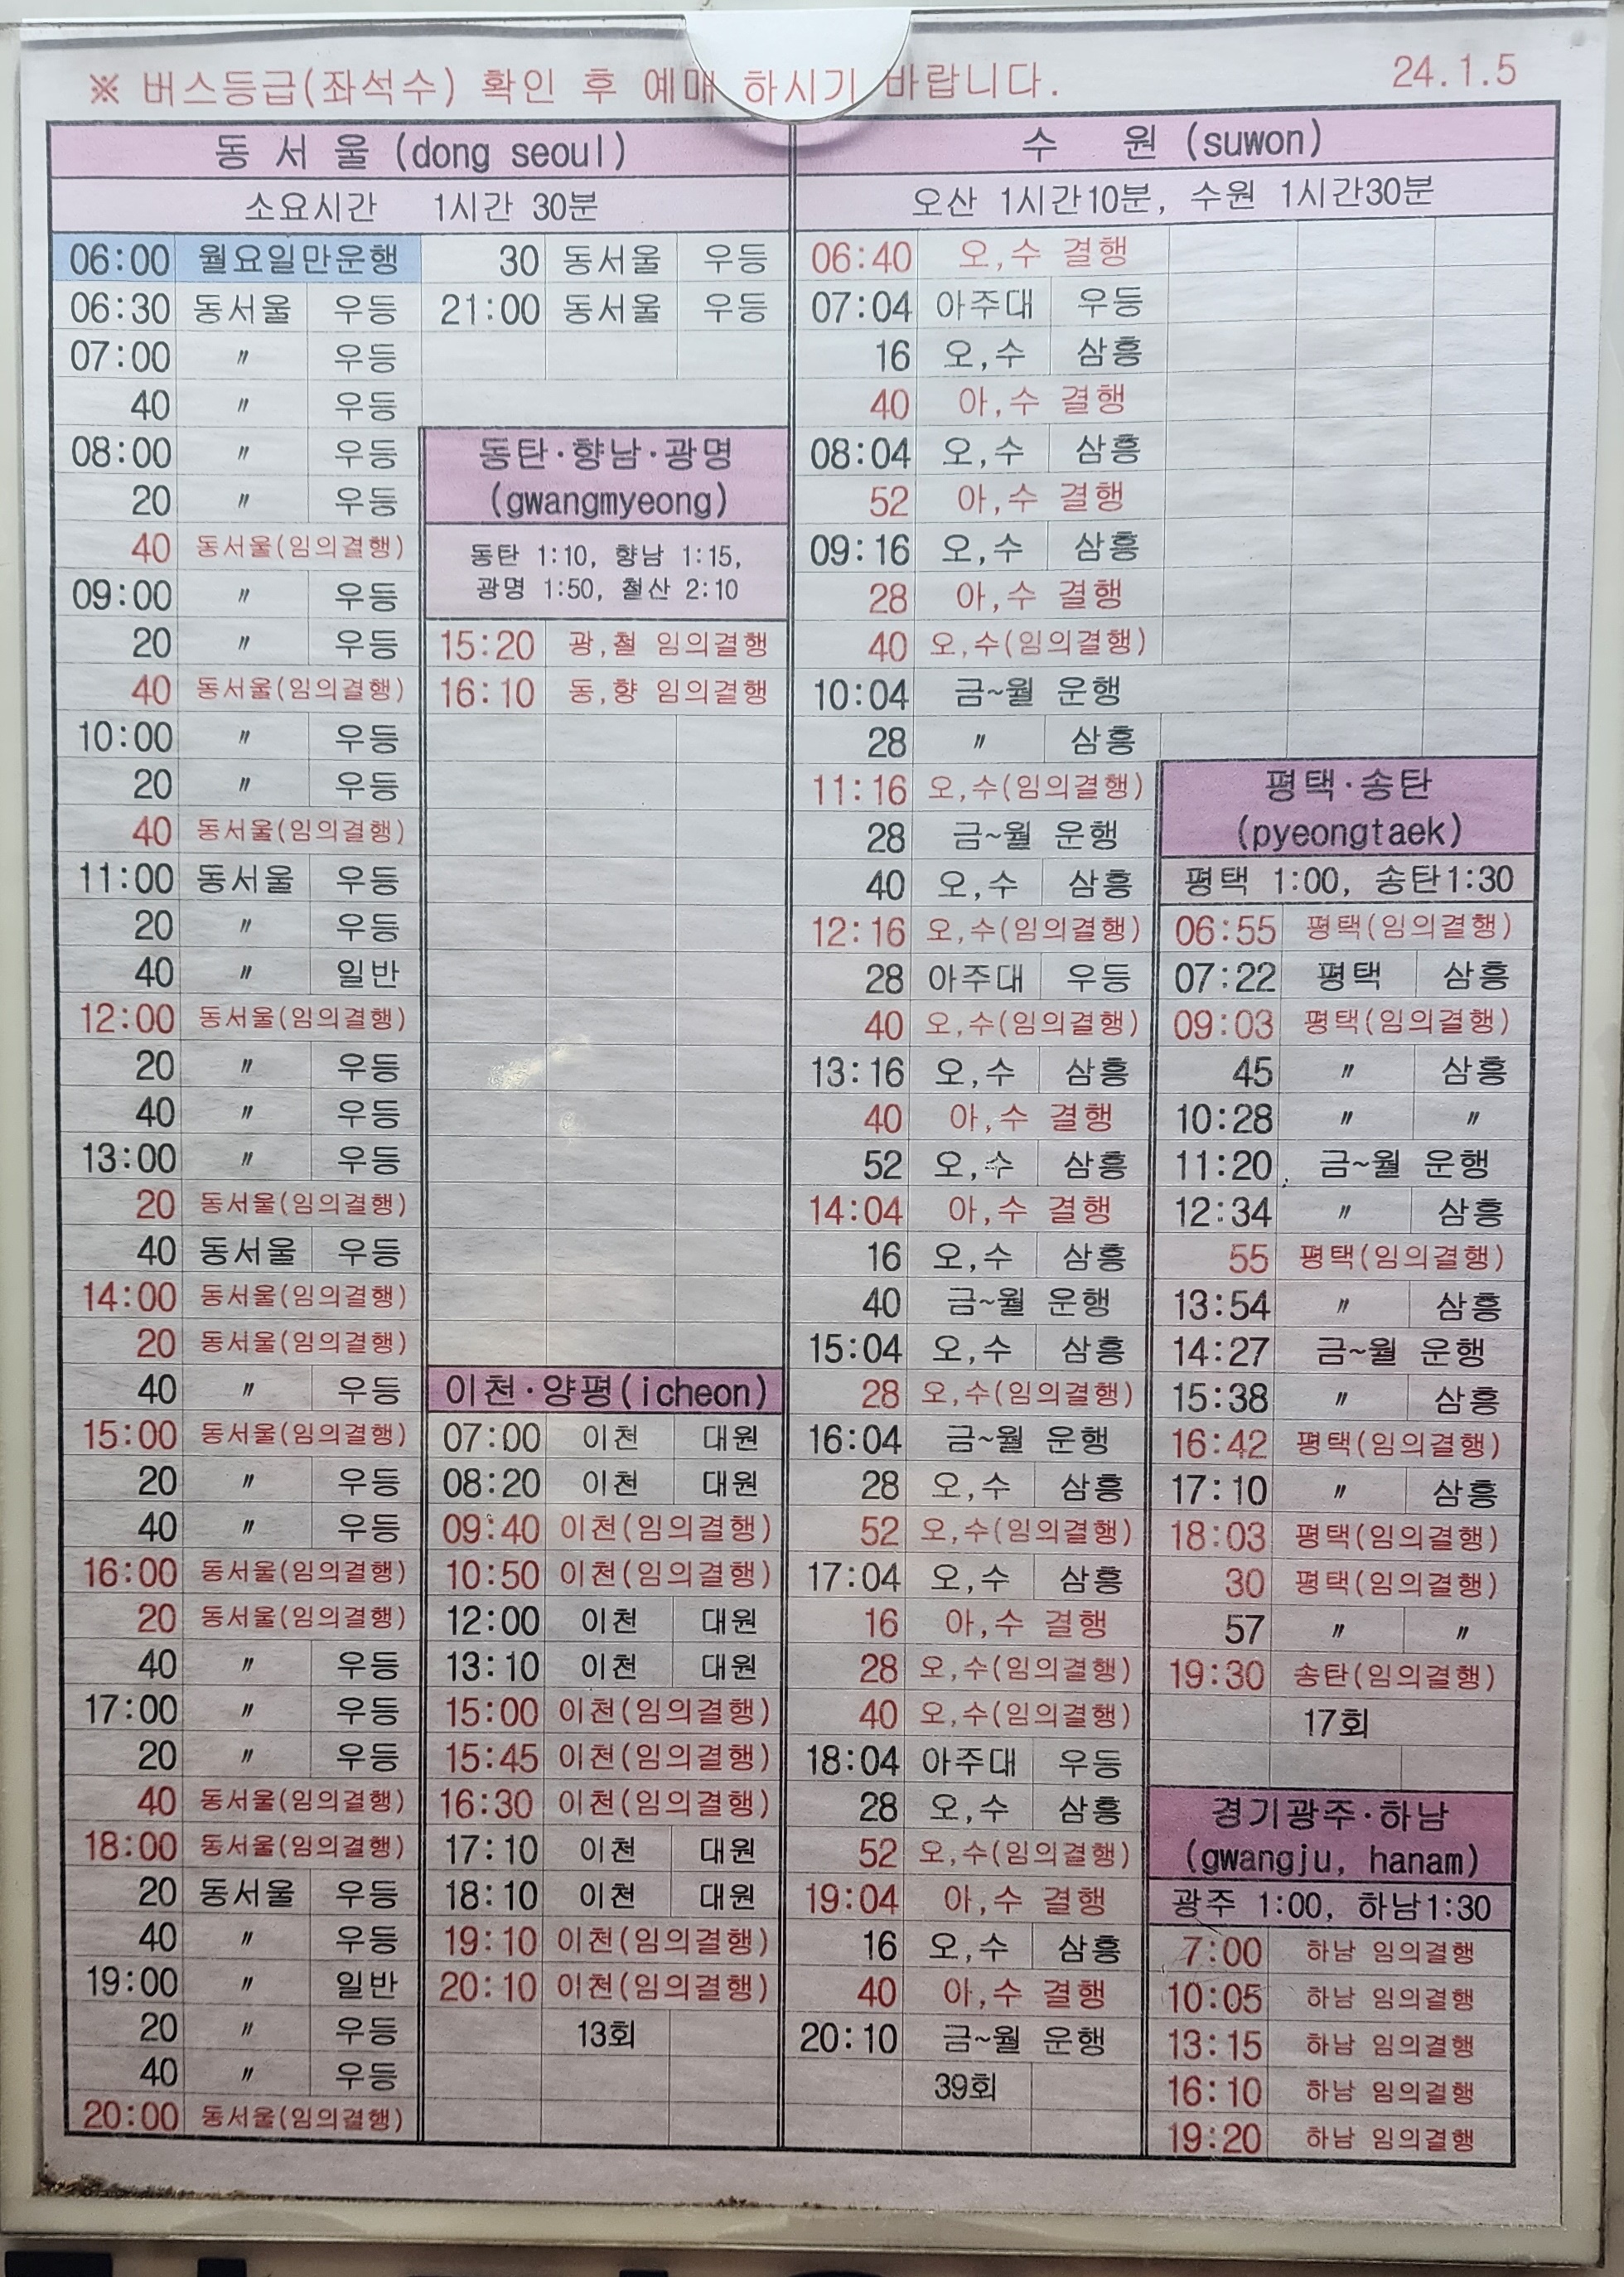 ※ 버스등급(좌석수) 확인 후 예매 하시기 바랍니다.
24.1.5
동 서 울 (dong seoul)
소요시간 1시간 30분
06:00 월요일만운행
06:30 동서울 우등
07:00 〃 우등
40 〃 우등
08:00 〃 우등
20 〃 우등
40 동서울(임의결행)
09:00 〃 우등
20 〃 우등
40 동서울(임의결행)
10:00 〃 우등
20 〃 우등
40 동서울(임의결행)
11:00 동서울 우등
20 〃 우등
40 〃 일반
12:00 동서울(임의결행)
20 〃 우등
40 〃 우등
13:00 〃 우등
20 동서울(임의결행)
40 동서울 우등
14:00 동서울(임의결행)
20 동서울(임의결행)
40 〃 우등
15:00 동서울(임의결행)
20 〃 우등
40 〃 우등
16:00 동서울(임의결행)
20 동서울(임의결행)
40 〃 우등
17:00 〃 우등
20 〃 우등
40 동서울(임의결행)
18:00 동서울(임의결행)
20 동서울 우등
40 〃 우등
19:00 〃 일반
20 〃 우등
40 〃 우등
20:00 동서울(임의결행)
30 동서울 우등
21:00 동서울 우등
동탄·향남·광명
(gwangmyeong)
동탄 1:10, 향남 1:15,
광명 1:50, 철산 2:10
15:20 광,철 임의결행
16:10 동,향 임의결행
이천·양평(icheon)
07:00 이천 대원
08:20 이천 대원
09:40 이천(임의결행)
10:50 이천(임의결행)
12:00 이천 대원
13:10 이천 대원
15:00 이천(임의결행)
15:45 이천(임의결행)
16:30 이천(임의결행)
17:10 이천 대원
18:10 이천 대원
19:10 이천(임의결행)
20:10 이천(임의결행)
13회
수 원 (suwon)
오산 1시간10분, 수원 1시간30분
06:40 오,수 결행
07:04 아주대 우등
16 오,수 삼흥
40 아,수 결행
08:04 오,수 삼흥
52 아,수 결행
09:16 오,수 삼흥
28 아,수 결행
40 오,수(임의결행)
10:04 금~월 운행
28 〃 삼흥
11:16 오,수(임의결행)
28 금~월 운행
40 오,수 삼흥
12:16 오,수(임의결행)
28 아주대 우등
40 오,수(임의결행)
13:16 오,수 삼흥
40 아,수 결행
52 오,수 삼흥
14:04 아,수 결행
16 오,수 삼흥
40 금~월 운행
15:04 오,수 삼흥
28 오,수(임의결행)
16:04 금~월 운행
28 오,수 삼흥
52 오,수(임의결행)
17:04 오,수 삼흥
16 아,수 결행
28 오,수(임의결행)
40 오,수(임의결행)
18:04 아주대 우등
28 오,수 삼흥
52 오,수(임의결행)
19:04 아,수 결행
16 오,수 삼흥
40 아,수 결행
20:10 금~월 운행
39회
평택·송탄
(pyeongtaek)
평택 1:00, 송탄1:30
06:55 평택(임의결행)
07:22 평택 삼흥
09:03 평택(임의결행)
45 〃 삼흥
10:28 〃 〃
11:20 금~월 운행
12:34 〃 삼흥
55 평택(임의결행)
13:54 〃 삼흥
14:27 금~월 운행
15:38 〃 삼흥
16:42 평택(임의결행)
17:10 〃 삼흥
18:03 평택(임의결행)
30 평택(임의결행)
57 〃 〃
19:30 송탄(임의결행)
17회
경기광주·하남
(gwangju, hanam)
광주 1:00, 하남1:30
7:00 하남 임의결행
10:05 하남 임의결행
13:15 하남 임의결행
16:10 하남 임의결행
19:20 하남 임의결행